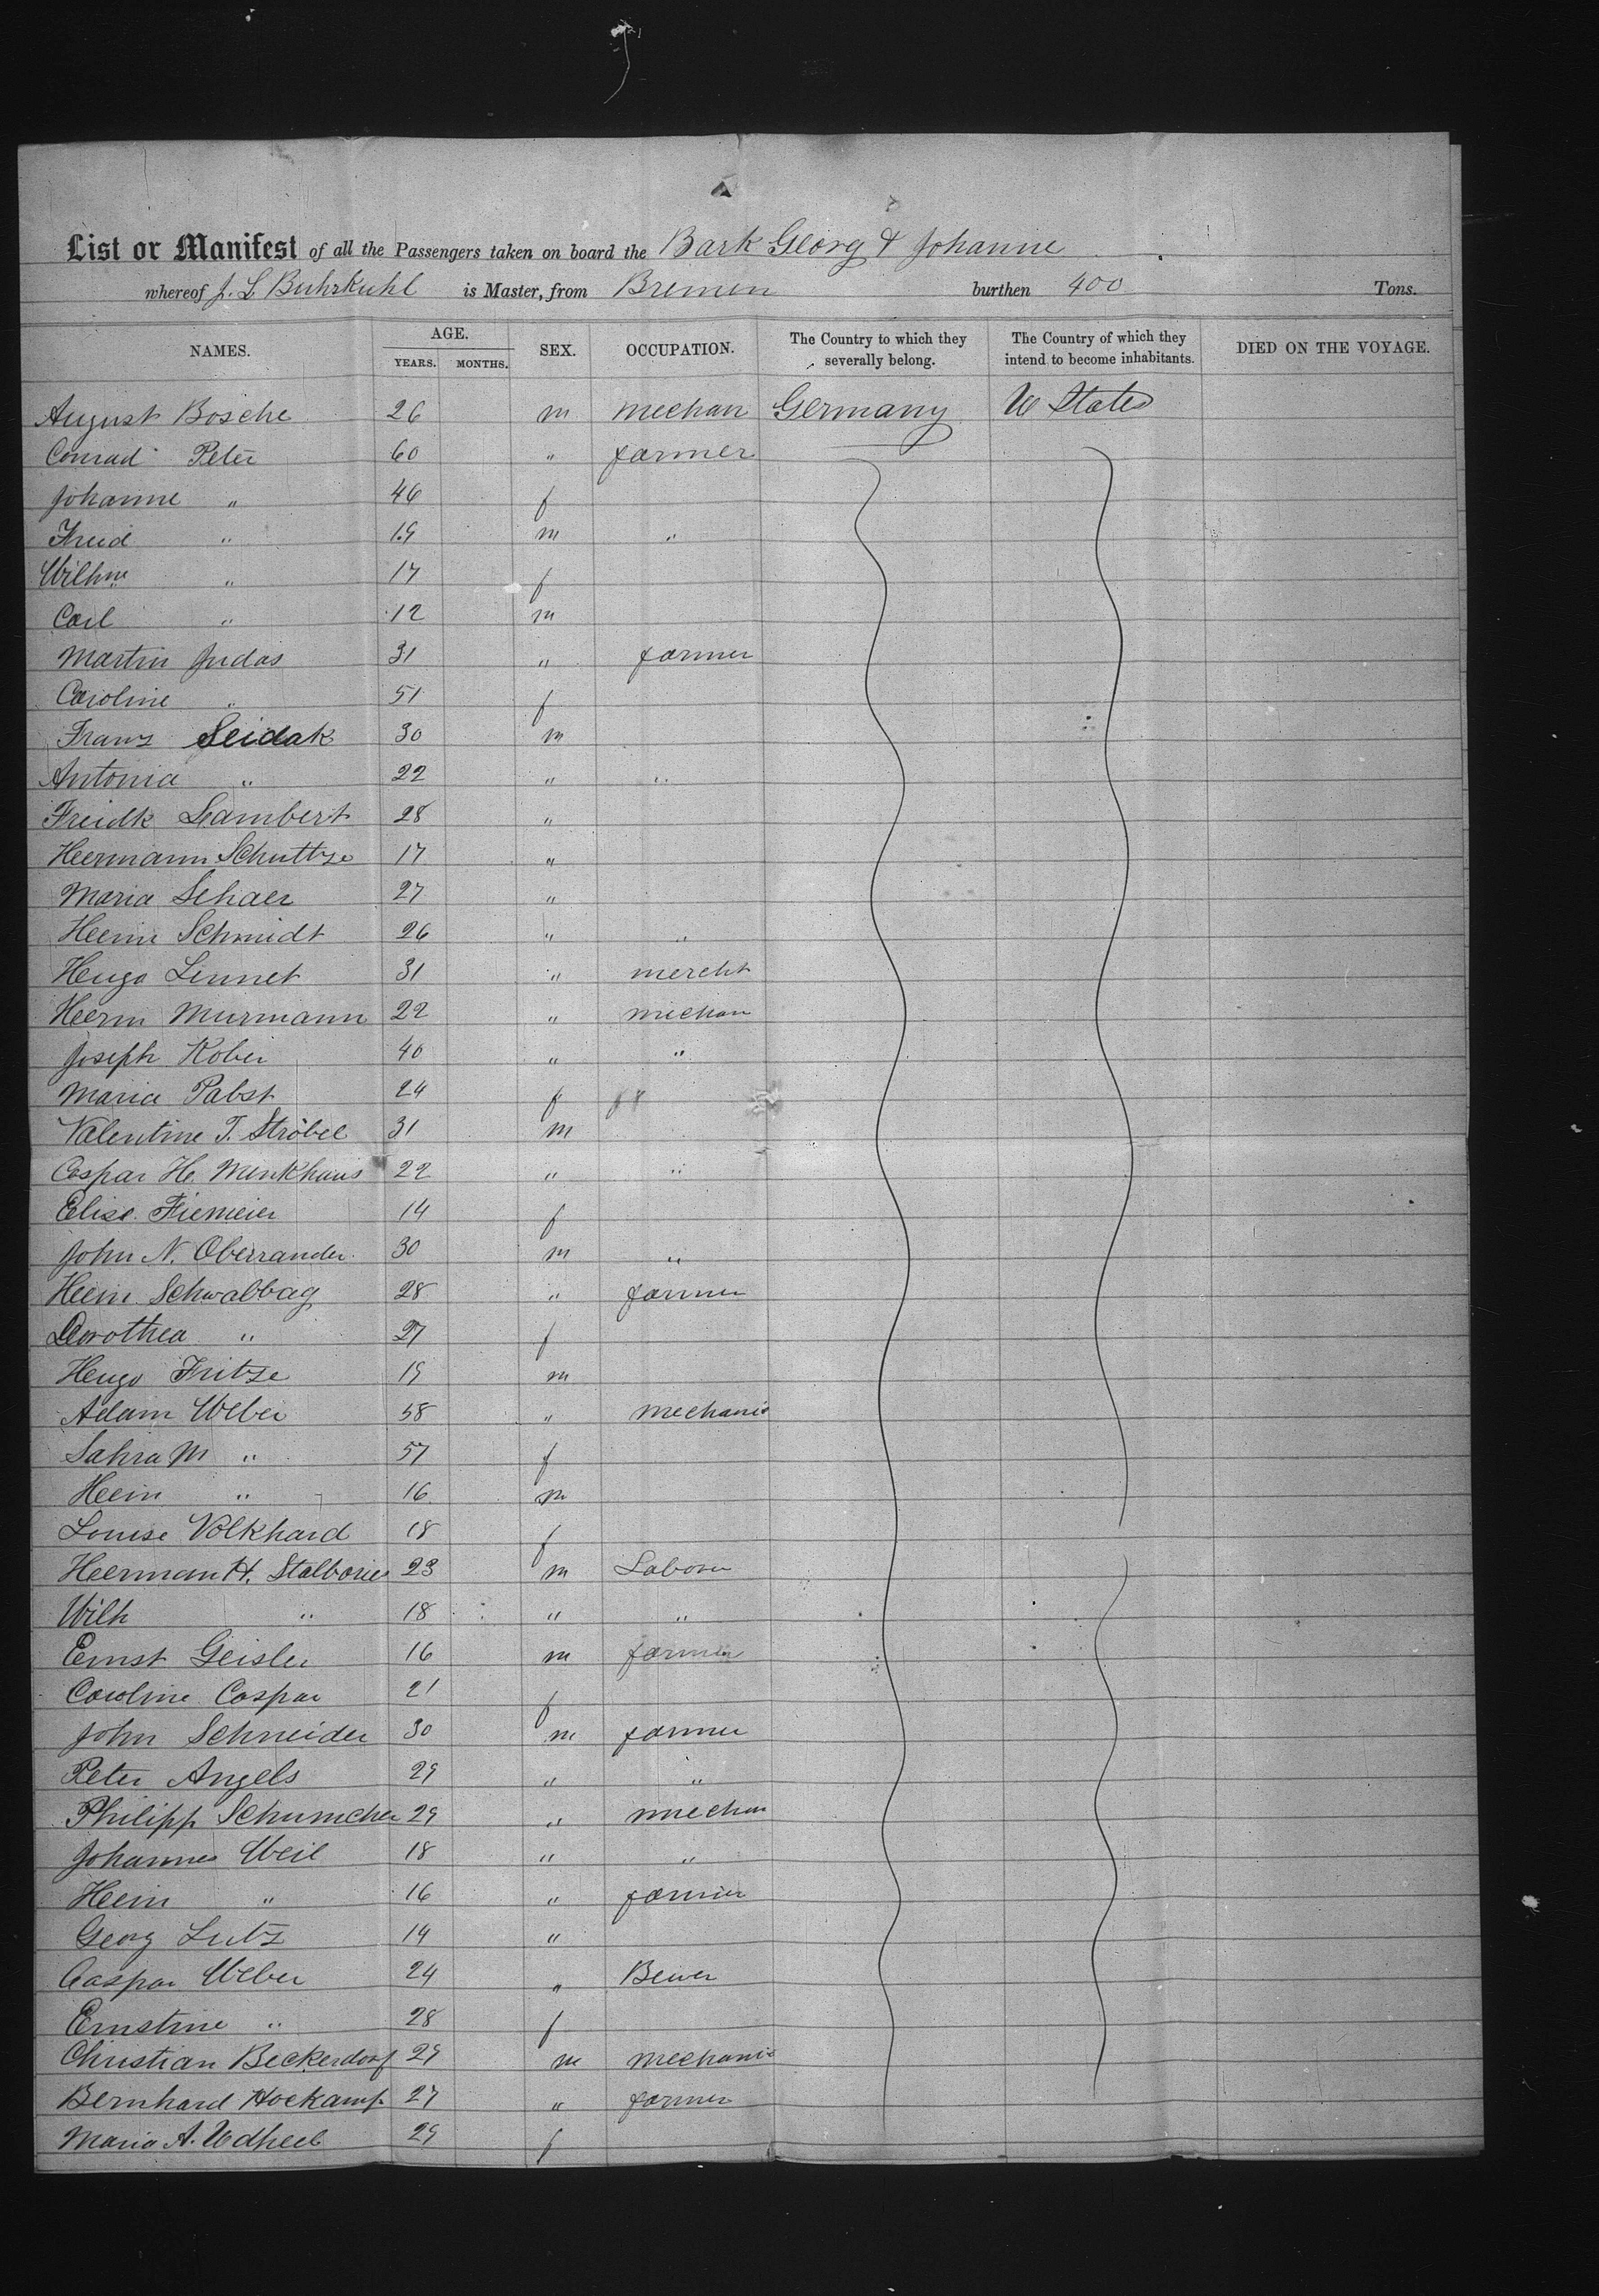 List or Manifest of all the Passengers taken on board the Bark Georg & Johanne
whereof J. L. Buhrkuhl is Master, from Bremen burthen 400 Tons.
NAMES. AGE. YEARS. MONTHS. SEX. OCCUPATION. The Country to which they severally belong. The Country of which they intend to become inhabitants. DIED ON THE VOYAGE.
August Bosche 26 m mechan Germany U States
Conrad Peter 60 " farmer
Johanne " 46 f
Fried " 19 m "
Wilhne " 17 f
Carl " 12 m
Martin Judas 31 " farmer
Caroline " 51 f
Franz Seidak 30 m
Antonia " 22 " "
Freidk Lambert 28 "
Heermann Schuttze 17 "
Maria Schaer 27 "
Heinr Schmidt 26 " "
Hugo Linnet 31 " mercht
Heerm Murmann 22 " mechan
Joseph Kober 40 " "
Maria Pabst 24 f
Valentine T. Ströbel 31 m
Caspar H. Menkhaus 22 " "
Elise Fiemeier 14 f
John N. Oberrander 30 m "
Heinr Schwalbbag 28 " farmer
Dorothea " 27 f
Hugo Fritze 19 m
Adam Weber 58 " mechanic
Sahra M " 57 f
Hein " 16 m
Louise Volkhard 18 f
Heerman H. Stalbories 23 m Laborer
Wilh " 18 " "
Ernst Geisler 16 m farmer
Caroline Caspar 21 f
John Schneider 30 m farmer
Peter Angels 29 " "
Philipp Schumcher 29 " mechan
Johannes Weil 18 " "
Hein " 16 " farmer
Georg Lutz 14 "
Caspar Weber 24 " Bewer
Ernstine " 28 f
Christian Beckerdorf 29 m mechanic
Bernhard Hoekamp 27 " farmer
Maria A. 29 f